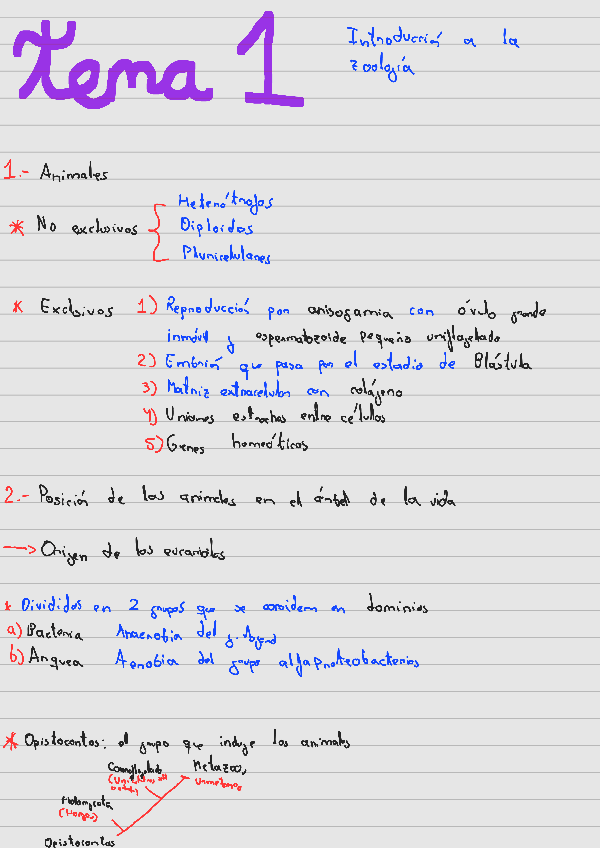 Tema 1
Introducción a la
zoología
1.- Animales
* No exclusivos
Heterótrofos
Diploides
Pluricelulares
* Exclusivos 1) Reproducción por anisogamia con óvulo grande
inmóvil y espermatozoide pequeño uniflagelado
2) Embrión que pasa por el estadio de Blástula
3) Matriz extracelular con colágeno
4) Uniones estrechas entre células
5) Genes homeóticos
2.- Posición de los animales en el árbol de la vida
→ Origen de los eucariotas
* Divididos en 2 grupos que se consideran dominios
a) Bacteria Anaerobia del g.
b) Arquea Aerobia del grupo alfaproteobacterias
* Opistocontos: el grupo que incluye los animales
Metazoo,
Holomycota
(Hongos)
Opistocontos